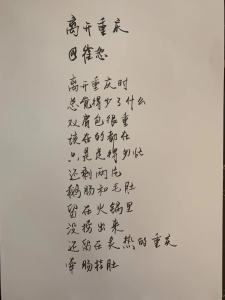 离开重庆
@崔恕
离开重庆时
总觉得少了什么
双肩包很重
该在的都在
只是走得匆忙
还剩两片
鹅肠和毛肚
留在火锅里
没捞出来
还留在炎热的重庆
牵肠挂肚